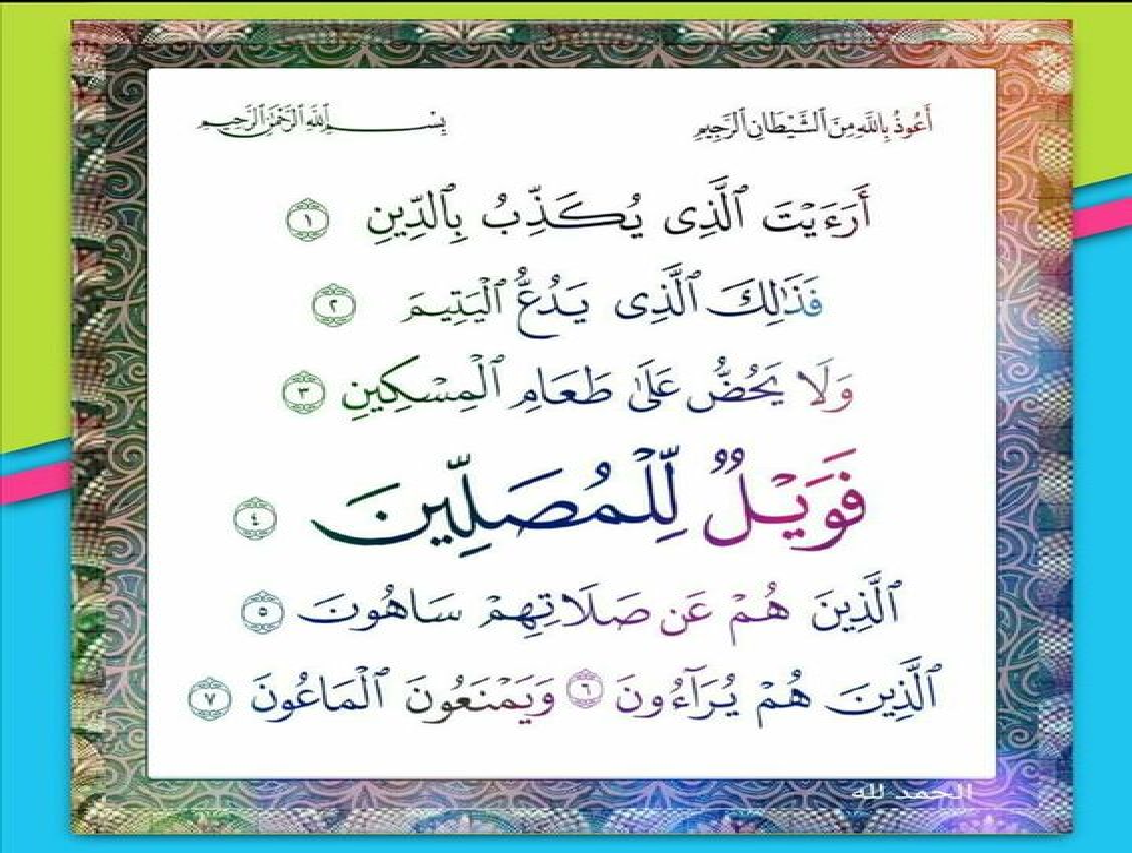 أَعُوذُ بِٱللَّهِ مِنَ ٱلشَّيْطَانِ ٱلرَّجِيمِ بِسْــــــمِ ٱللَّهِ ٱلرَّحْمَٰنِ ٱلرَّحِيمِ
أَرَءَيْتَ ٱلَّذِى يُكَذِّبُ بِٱلدِّينِ ١
فَذَٰلِكَ ٱلَّذِى يَدُعُّ ٱلْيَتِيمَ ٢
وَلَا يَحُضُّ عَلَىٰ طَعَامِ ٱلْمِسْكِينِ ٣
فَوَيْلٌ لِّلْمُصَلِّينَ ٤
ٱلَّذِينَ هُمْ عَن صَلَاتِهِمْ سَاهُونَ ٥
ٱلَّذِينَ هُمْ يُرَآءُونَ ٦ وَيَمْنَعُونَ ٱلْمَاعُونَ ٧
الحمد لله